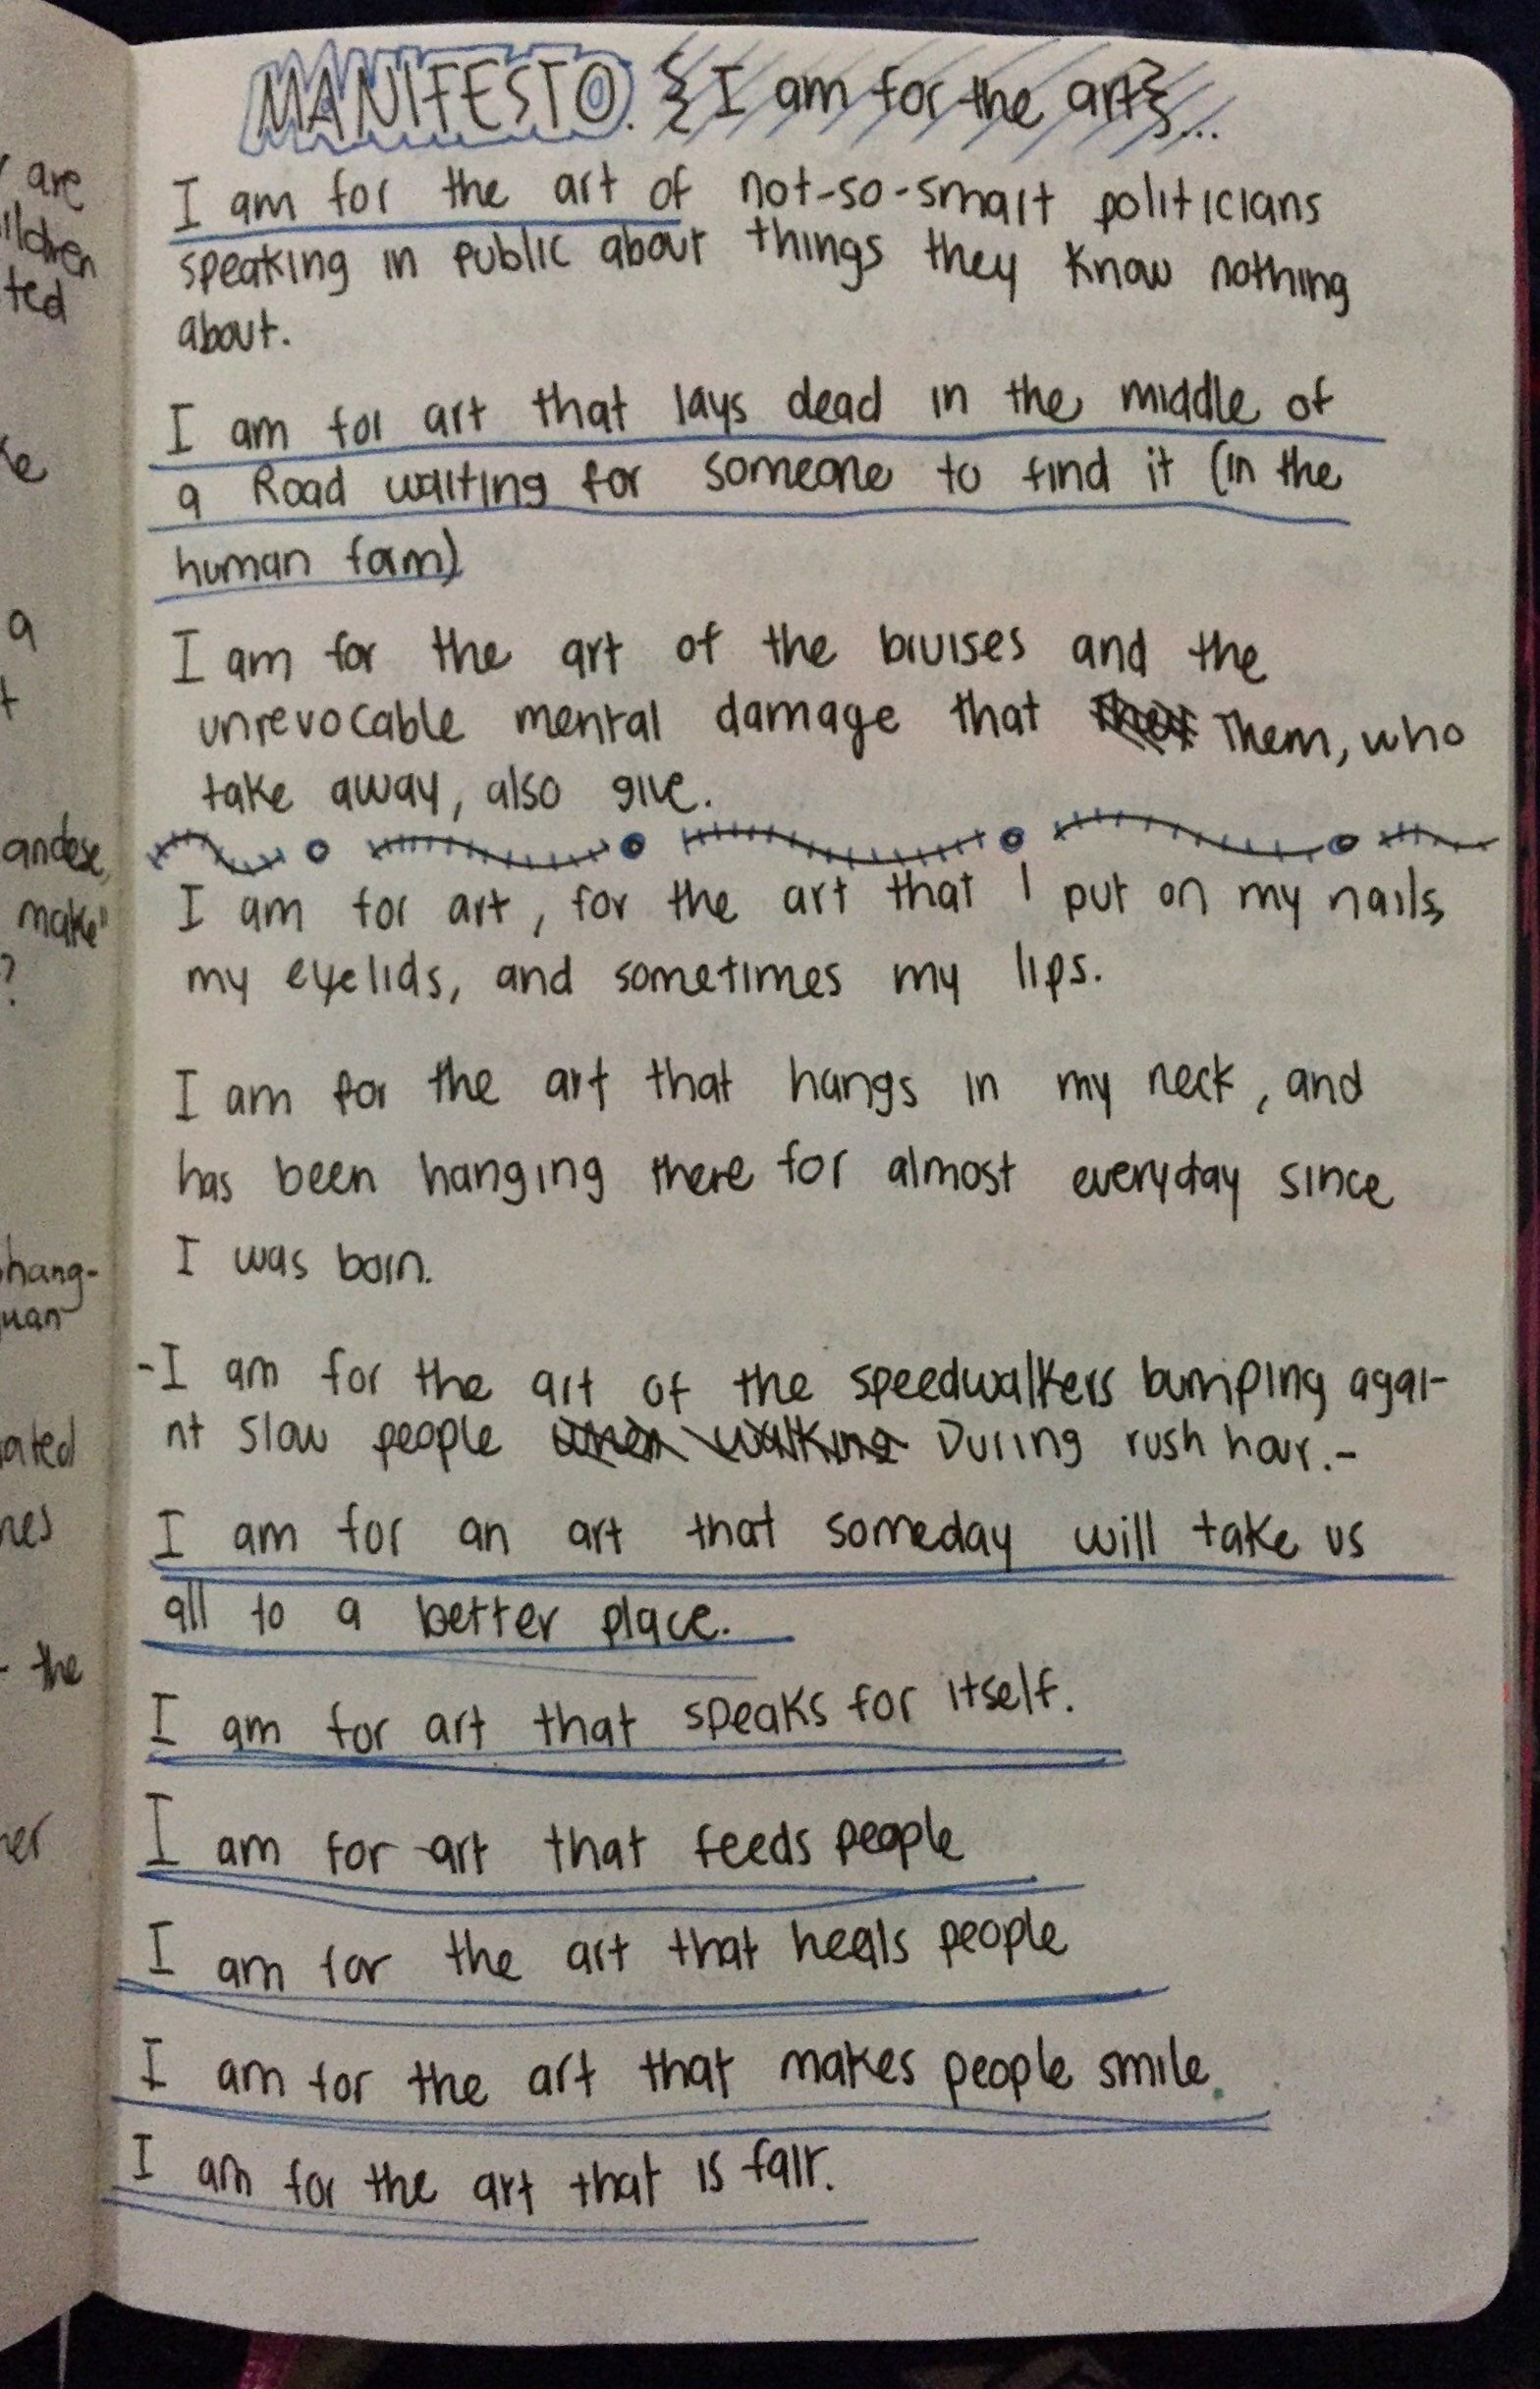 are
ildren
ted
ke
a
t
make"
?
hang-
uan
ated
nes
- the
er
MANIFESTO. { I am for the art}...
I am for the art of not-so-smart politicians
speaking in public about things they know nothing
about.
I am for art that lays dead in the middle of
a Road waiting for someone to find it (in the
human form)
I am for the art of the bruises and the
unrevocable mental damage that Them, who
take away, also give.
I am for art, for the art that I put on my nails,
my eyelids, and sometimes my lips.
I am for the art that hangs in my neck, and
has been hanging there for almost everyday since
I was born.
-I am for the art of the speedwalkers bumping agai-
nt slow people when walking During rush hour.-
I am for an art that someday will take us
all to a better place.
I am for art that speaks for itself.
I am for art that feeds people
I am for the art that heals people
I am for the art that makes people smile.
I am for the art that is fair.